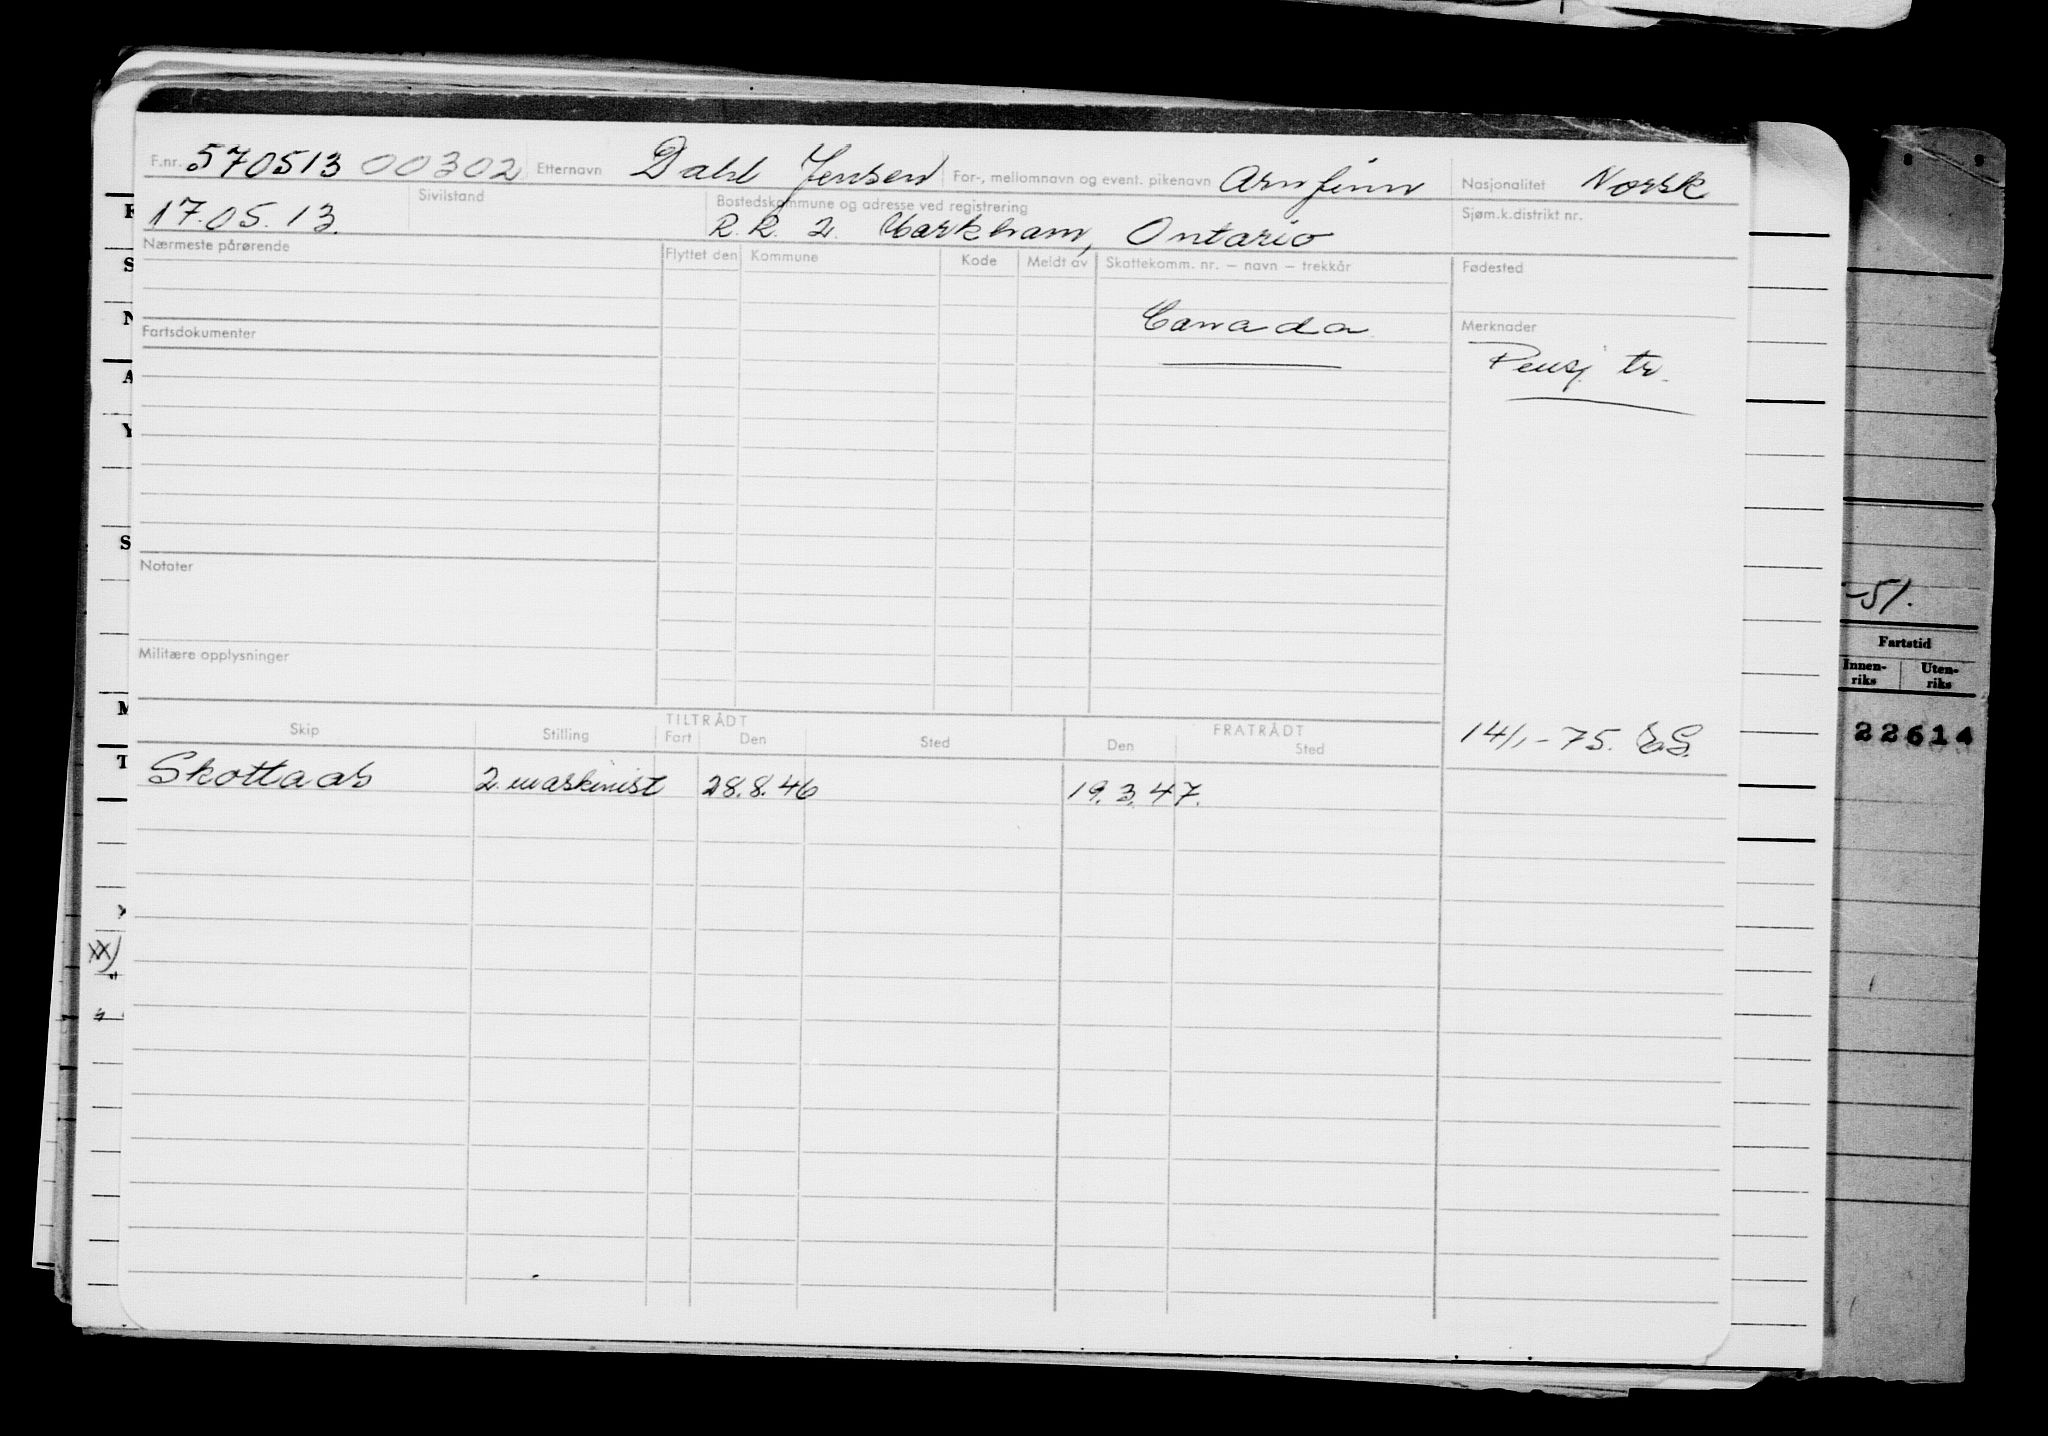 F.nr. 570513 00302 Etternavn Dahl Jensen For-, mellomnavn og event. pikenavn Arnfinn Nasjonalitet Norsk
17.05.13. Sivilstand Bostedskommune og adresse ved registrering Sjøm.k.distrikt nr.
R.R. 2. Markham, Ontario
Nærmeste pårørende Flyttet den Kommune Kode Meldt av Skattekomm. nr. – navn – trekkår Fødested
Canada
Fartsdokumenter Merknader
Pensj tr.
Notater
-51.
Fartstid
Militære opplysninger
Innen-riks Uten-riks
TILTRÅDT FRATRÅDT
Skip Stilling Fart Den Sted Den Sted
14/1-75. ES.
22614
Skottaas 2. maskinist 28.8.46 19.3.47.